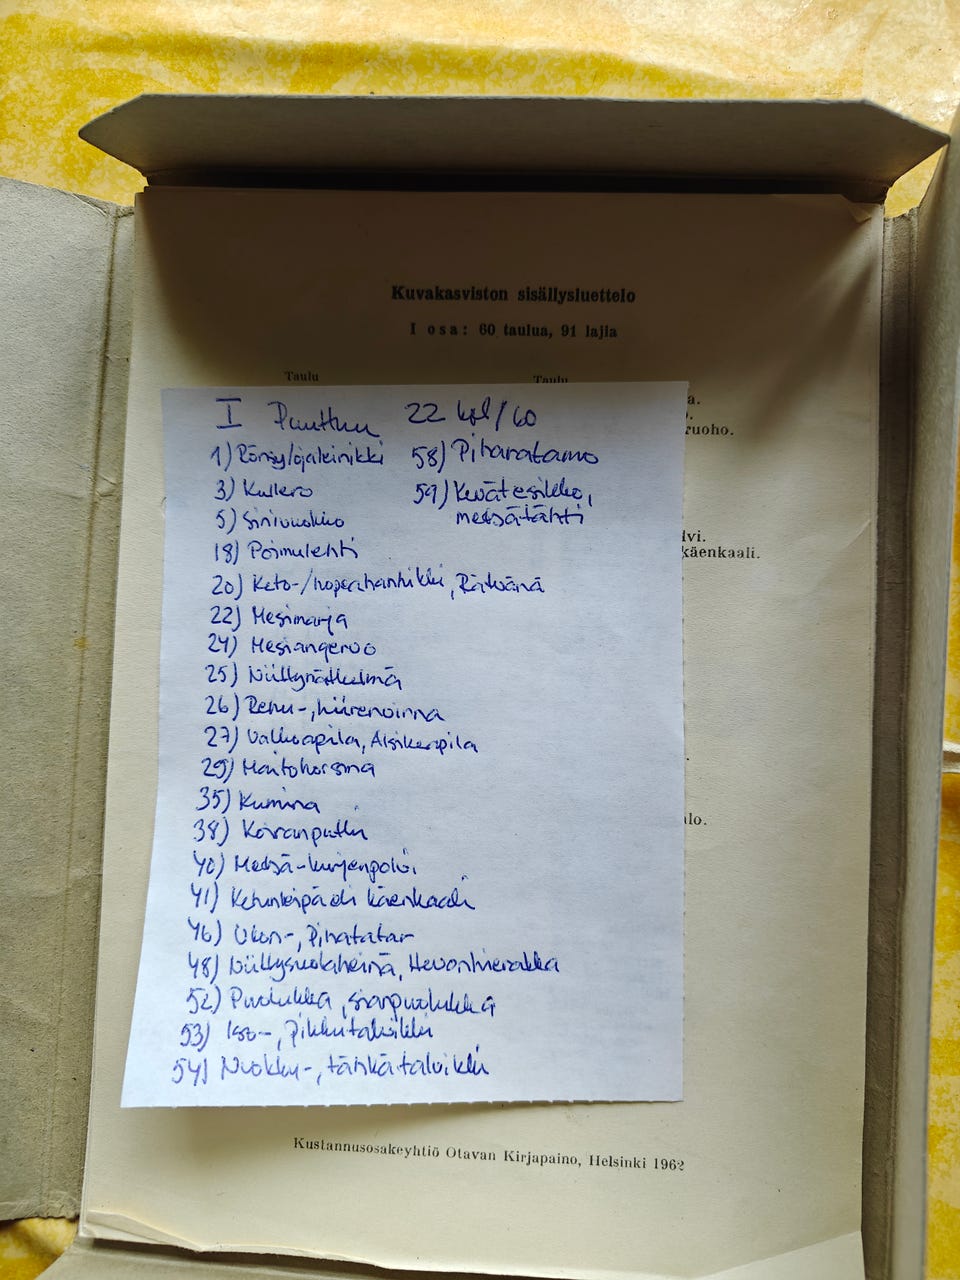 Kuvakasviston sisällysluettelo
I osa: 60 taulua, 91 lajia
Taulu
Taulu
a.
ruoho.
lvi.
käenkaali.
alo.
I Puuttuu 22 kpl/60
1) Rönsy/ojaleinikki
3) Kullero
5) Sinivuokko
18) Poimulehti
20) Keto-/hopeahanhikki, Rätvänä
22) Mesimarja
24) Mesiangervo
25) Niittynätkelmä
26) Rehu-, hiirenvirna
27) Valkoapila, Alsikeapila
29) Maitohorsma
35) Kumina
38) Koiranputki
40) Metsä-kurjenpolvi
41) Ketunleipä eli käenkaali
46) Ukon-, Pihatatar
48) Niittysuolaheinä, Hevonhierakka
52) Puolukka, sianpuolukka
53) Iso-, Pikkutalvikki
54) Nuokku-, tähkätalvikki
58) Piharatamo
59) Kevätesikko,
metsätähti
Kustannusosakeyhtiö Otavan Kirjapaino, Helsinki 1962